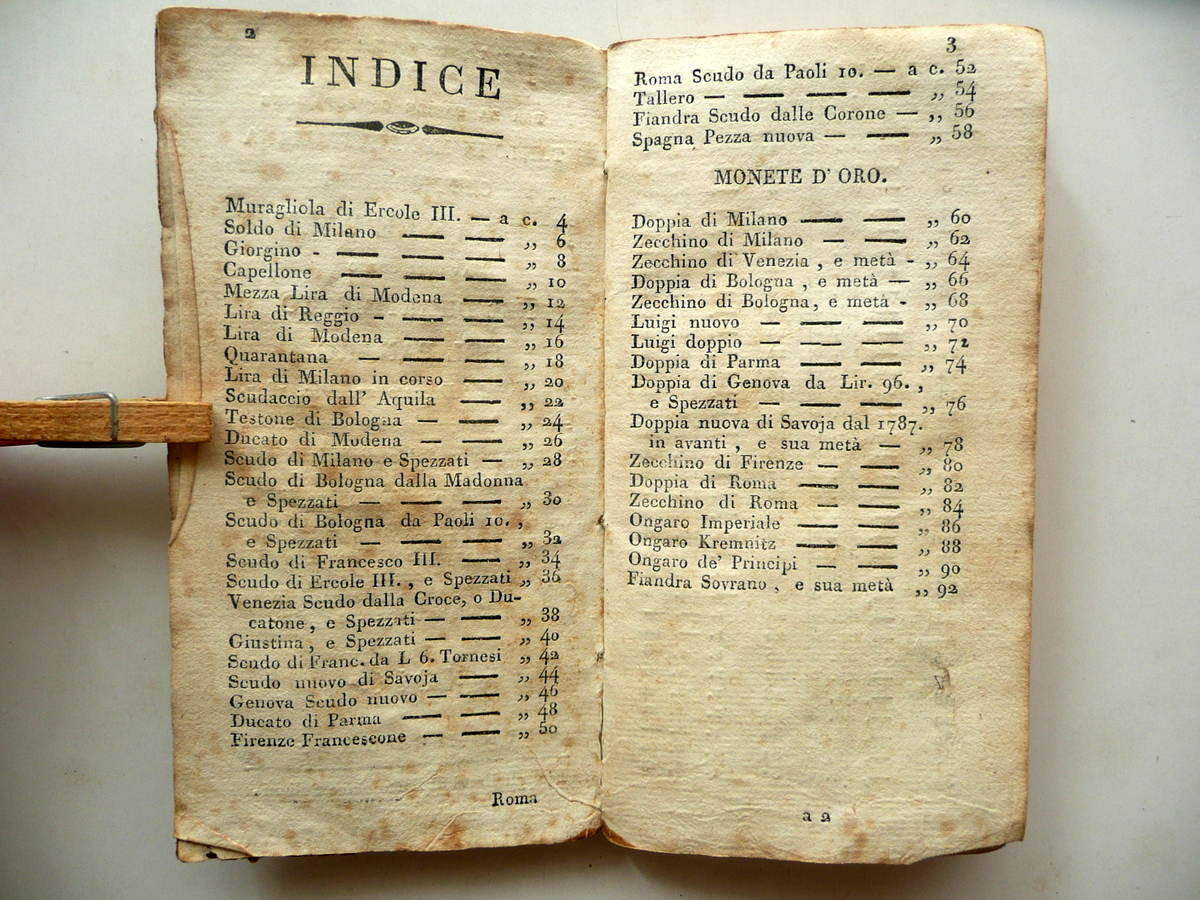 2
INDICE
Muragliola di Ercole III. — a c. 4
Soldo di Milano — — „ 6
Giorgino - — — — „ 8
Capellone — — — „ 10
Mezza Lira di Modena — „ 12
Lira di Reggio - — — „ 14
Lira di Modena — — „ 16
Quarantana — — — „ 18
Lira di Milano in corso — „ 20
Scudaccio dall' Aquila — „ 22
Testone di Bologna — — „ 24
Ducato di Modena — — „ 26
Scudo di Milano e Spezzati — „ 28
Scudo di Bologna dalla Madonna
e Spezzati — — — „ 30
Scudo di Bologna da Paoli 10. ,
e Spezzati — — — „ 32
Scudo di Francesco III. — — „ 34
Scudo di Ercole III. , e Spezzati „ 36
Venezia Scudo dalla Croce, o Du-
catone , e Spezzati — — „ 38
Giustina , e Spezzati — — „ 40
Scudo di Franc. da L 6. Tornesi „ 42
Scudo nuovo di Savoja — „ 44
Genova Scudo nuovo — — „ 46
Ducato di Parma — — „ 48
Firenze Francescone — — „ 50
Roma
3
Roma Scudo da Paoli 10. — a c. 52
Tallero — — — — „ 54
Fiandra Scudo dalle Corone — „ 56
Spagna Pezza nuova — — „ 58
MONETE D' ORO.
Doppia di Milano — — „ 60
Zecchino di Milano — — „ 62
Zecchino di Venezia , e metà - „ 64
Doppia di Bologna , e metà — „ 66
Zecchino di Bologna, e metà - „ 68
Luigi nuovo — — — „ 70
Luigi doppio — — — „ 72
Doppia di Parma — — „ 74
Doppia di Genova da Lir. 96. ,
e Spezzati — — — „ 76
Doppia nuova di Savoja dal 1787.
in avanti , e sua metà — „ 78
Zecchino di Firenze — — „ 80
Doppia di Roma — — „ 82
Zecchino di Roma — — „ 84
Ongaro Imperiale — — „ 86
Ongaro Kremnitz — — „ 88
Ongaro de' Principi — — „ 90
Fiandra Sovrano , e sua metà „ 92
a 2